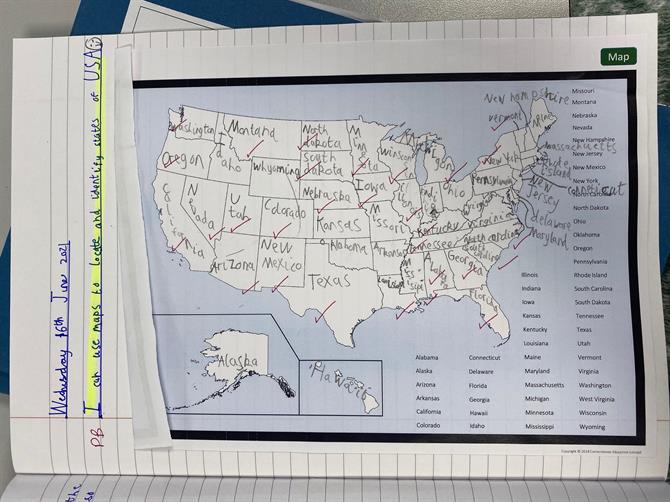 Wednesday 16th June 2021
PB I can use maps to locate and identify states of USA
Map
New hampshire
vermont
Maine
Washington
Montana
North dakota
Oregon
Idaho
Whyoming
South dakota
Winsconsin
New York
Massachusetts
Rhode island
Nebraska
Iowa
Ohio
Pennsylvania
New Jersey
California
Nevada
Utah
Colorado
Kansas
Missouri
Kentucky
Virginia
delaware
Maryland
Arizona
New Mexico
Oklahoma
Arkansas
Tennessee
North carolina
South carolina
Texas
Georgia
Florida
Alaska
Hawaii
Missouri
Montana
Nebraska
Nevada
New Hampshire
New Jersey
New Mexico
New York
North Carolina
North Dakota
Ohio
Oklahoma
Oregon
Pennsylvania
Illinois Rhode Island
Indiana South Carolina
Iowa South Dakota
Kansas Tennessee
Kentucky Texas
Louisiana Utah
Alabama Connecticut Maine Vermont
Alaska Delaware Maryland Virginia
Arizona Florida Massachusetts Washington
Arkansas Georgia Michigan West Virginia
California Hawaii Minnesota Wisconsin
Colorado Idaho Mississippi Wyoming
the
so